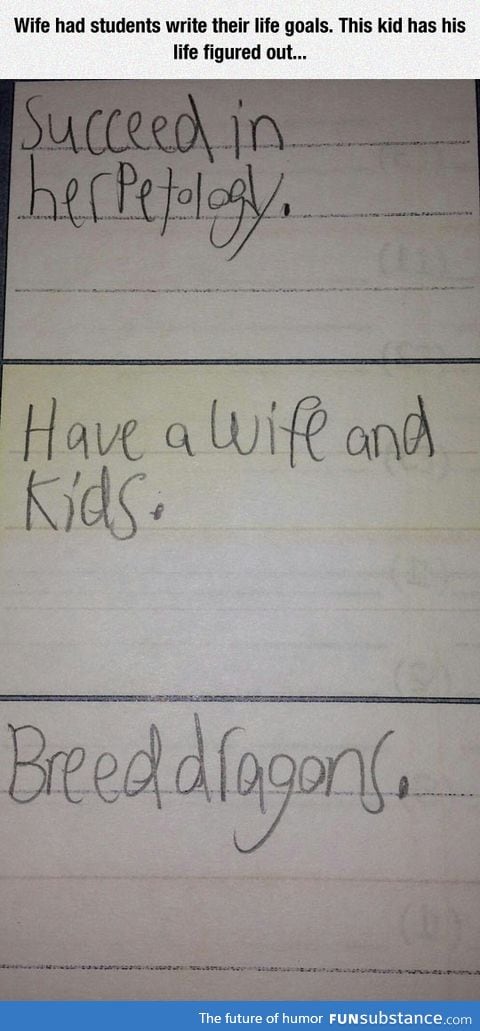 Wife had students write their life goals. This kid has his
life figured out...
Succeed in
herpetology.
Have a wife and
kids.
Breed dragons.
The future of humor FUNsubstance.com